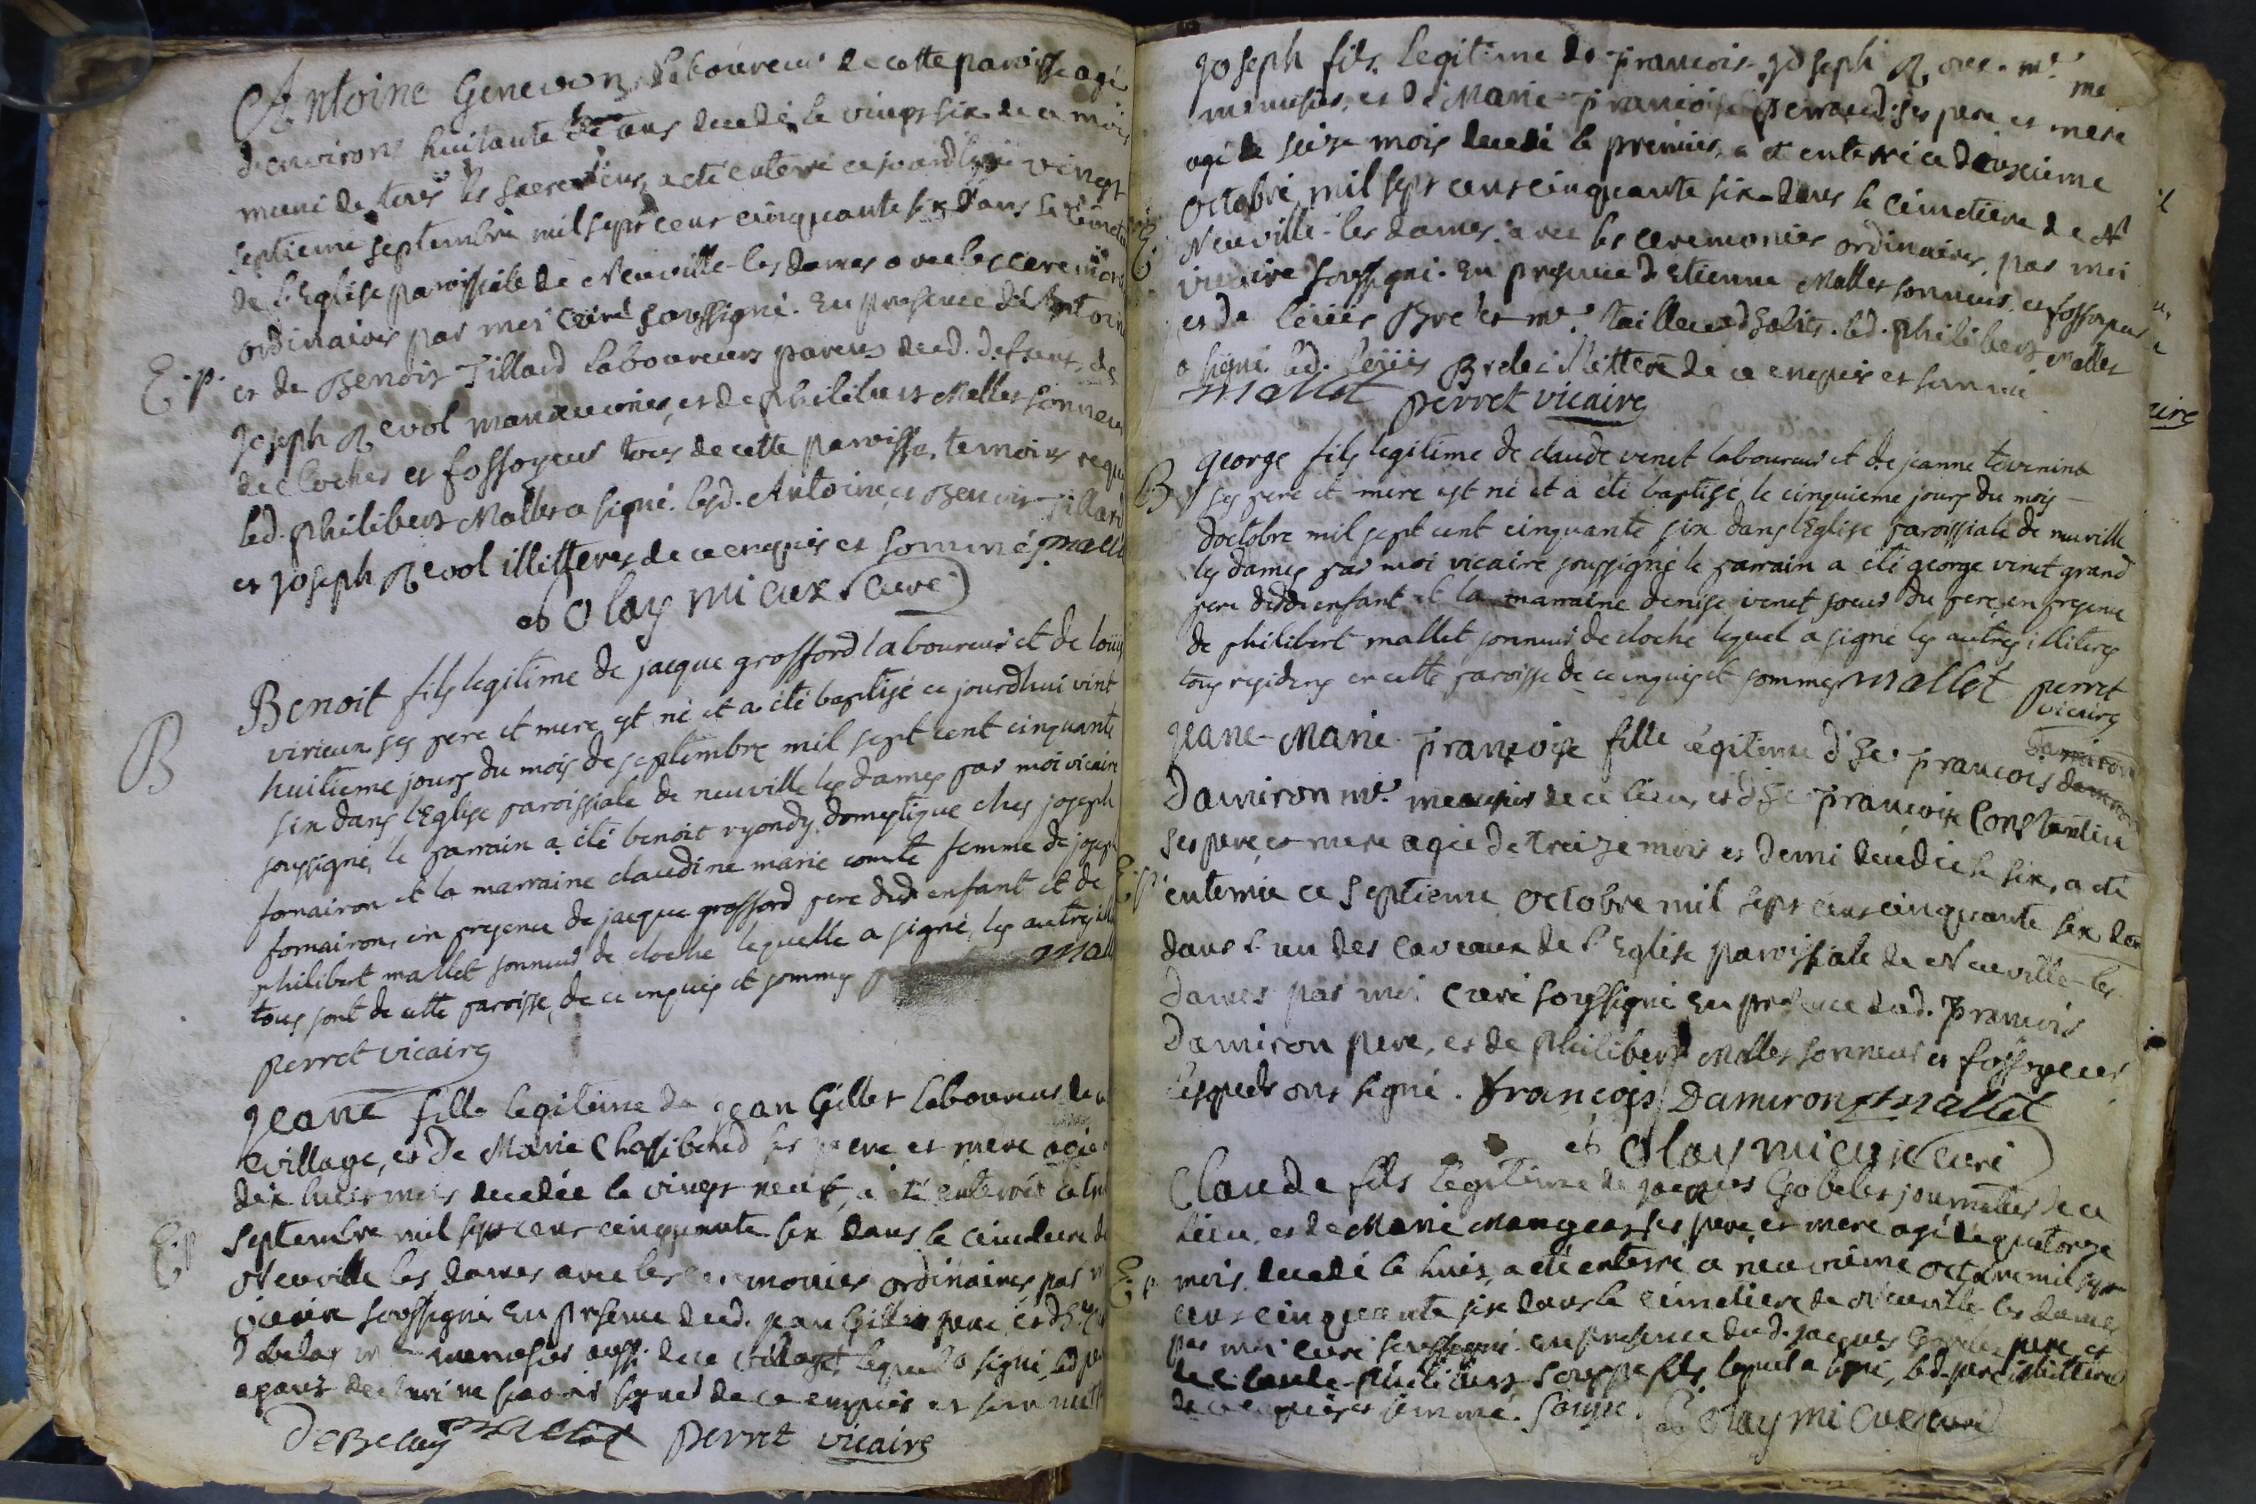 Antoine Genevon, laboureur de cette paroisse agé
d'environs huitante ans decedé le vingt six de ce mois
muni de tous les sacremens, a eté enterré ce jourdhui vingt
septieme septembre mil sept cens cinquante six dans le cimetie
de l'Eglise paroissiale de Neuville-les dames avec les ceremon
ordinaires par moi curé soussigné. En presence d'Antoin
E.p. et de Benoit Tillard laboureurs parens dud. defunt, de
Joseph Revol manœuvrier, et de philibert Mallet sonneur
de cloches et fossoyeur tous de cette paroisse, temoins requi
led. philibert Mallet a signé. lesd. Antoine et Benoit Tillard
et Joseph Revol illitteres de ce enquis et sommés. mallet
olaymieux curé
Benoit fils legitime de jacque grosford laboureur et de louis
virieux ses pere et mere est né et a été baptisé ce jourdhui vint
B huitieme jours du mois de septembre mil sept cent cinquante
six dans l'Eglise paroissiale de neuville les dames par moi vicaire
soussigné, le parrain a été benoit ryondy domestique ches joseph
fornairon et la marraine claudine marie comte femme de joseph
fornairon, en presence de jacque grosford pere dud enfant et de
philibert mallet sonneur de cloche lequelle a signé, les autres ill
tous sont de cette paroisse, de ce enquis et sommes mall
perret vicaire
Jeane fille legitime de jean Gillet laboureur de ce
village, et de Marie Chassiboud ses pere et mere agée
dix huit mois decedée le vingt neuf, a eté enterrée ce tre
E.p septembre mil sept cens cinquante six dans le cimetiere de
Neuville les dames avec les ceremonies ordinaires, par m
vicaire soussigné En presence dud. jean Gillet pere, et de
debelay menusier aussi de ce village, lequel a signé, led pere
a pour declaré ne savoir signer de ce enquis et sommé
DeBelay mallet perret vicaire
Joseph fils legitime de François Joseph me
menusier, et de Marie Françoise perraud ses pere et mere
agé de seize mois decedé le premier, a eté enterré ce deuxieme
octobre mil sept cens cinquante six dans le cimetiere de N
E. Neuville-les dames. avec les ceremonies ordinaires, par moi
vicaire soussigné. En presence d'Etienne Mallet sonneur, et fossoyeur
et de leüis Brelet me. tailleur d'habits. led. philibert Mallet
a signé. led. leüis Brelet illitteré de ce enquis et sommé
mallet perret vicaire
george fils legitime de claude venet laboureur et de jeanne tevenint
B ses pere et mere est né et a été baptisé le cinquieme jours du mois
doctobre mil sept cent cinquante six dans l'Eglise paroissiale de neuville
les dames par moi vicaire soussigné le parrain a été george venet grand
pere dudit enfant et la marraine denise venet soeur du pere, en presence
de philibert mallet sonneur de cloche lequel a signé les autres illiteres
tous residens en cette paroisse de ce enquis et sommes mallet perret
vicaire
Jeane-Marie Françoise fille legitime d'Sr. François
Damiron me. menusier de ce lieu, et d Françoise Constantin
ses pere et mere agée de treize mois et demi decedée le six, a eté
E.p. enterrée ce septieme octobre mil sept cens cinquante six
dans l'un des caveaux de l'Eglise paroissiale de Neuville-les
Dames par moi curé soussigné En presence dud. François
Damiron pere, et de philibert Mallet sonneur et fossoyeur
lesquels ont signé. françois Damiron mallet
olaymieux curé
Claude fils legitime de jacques Gobelet journallier de ce
lieu, et de Marie Mangeat ses pere, et mere agé de quatorze
E.p mois, decedé le huit, a eté enterré ce neuvieme octobre mil sept
cens cinquante six dans le cimetiere de Neuville les dames
par moi curé soussigné en presence dud. jacques Gobelet pere, et
de claude philibert Souppe fils lequel a signé, led. pere illitteré
de ce enquis et sommé. Souppe. olaymieux curé